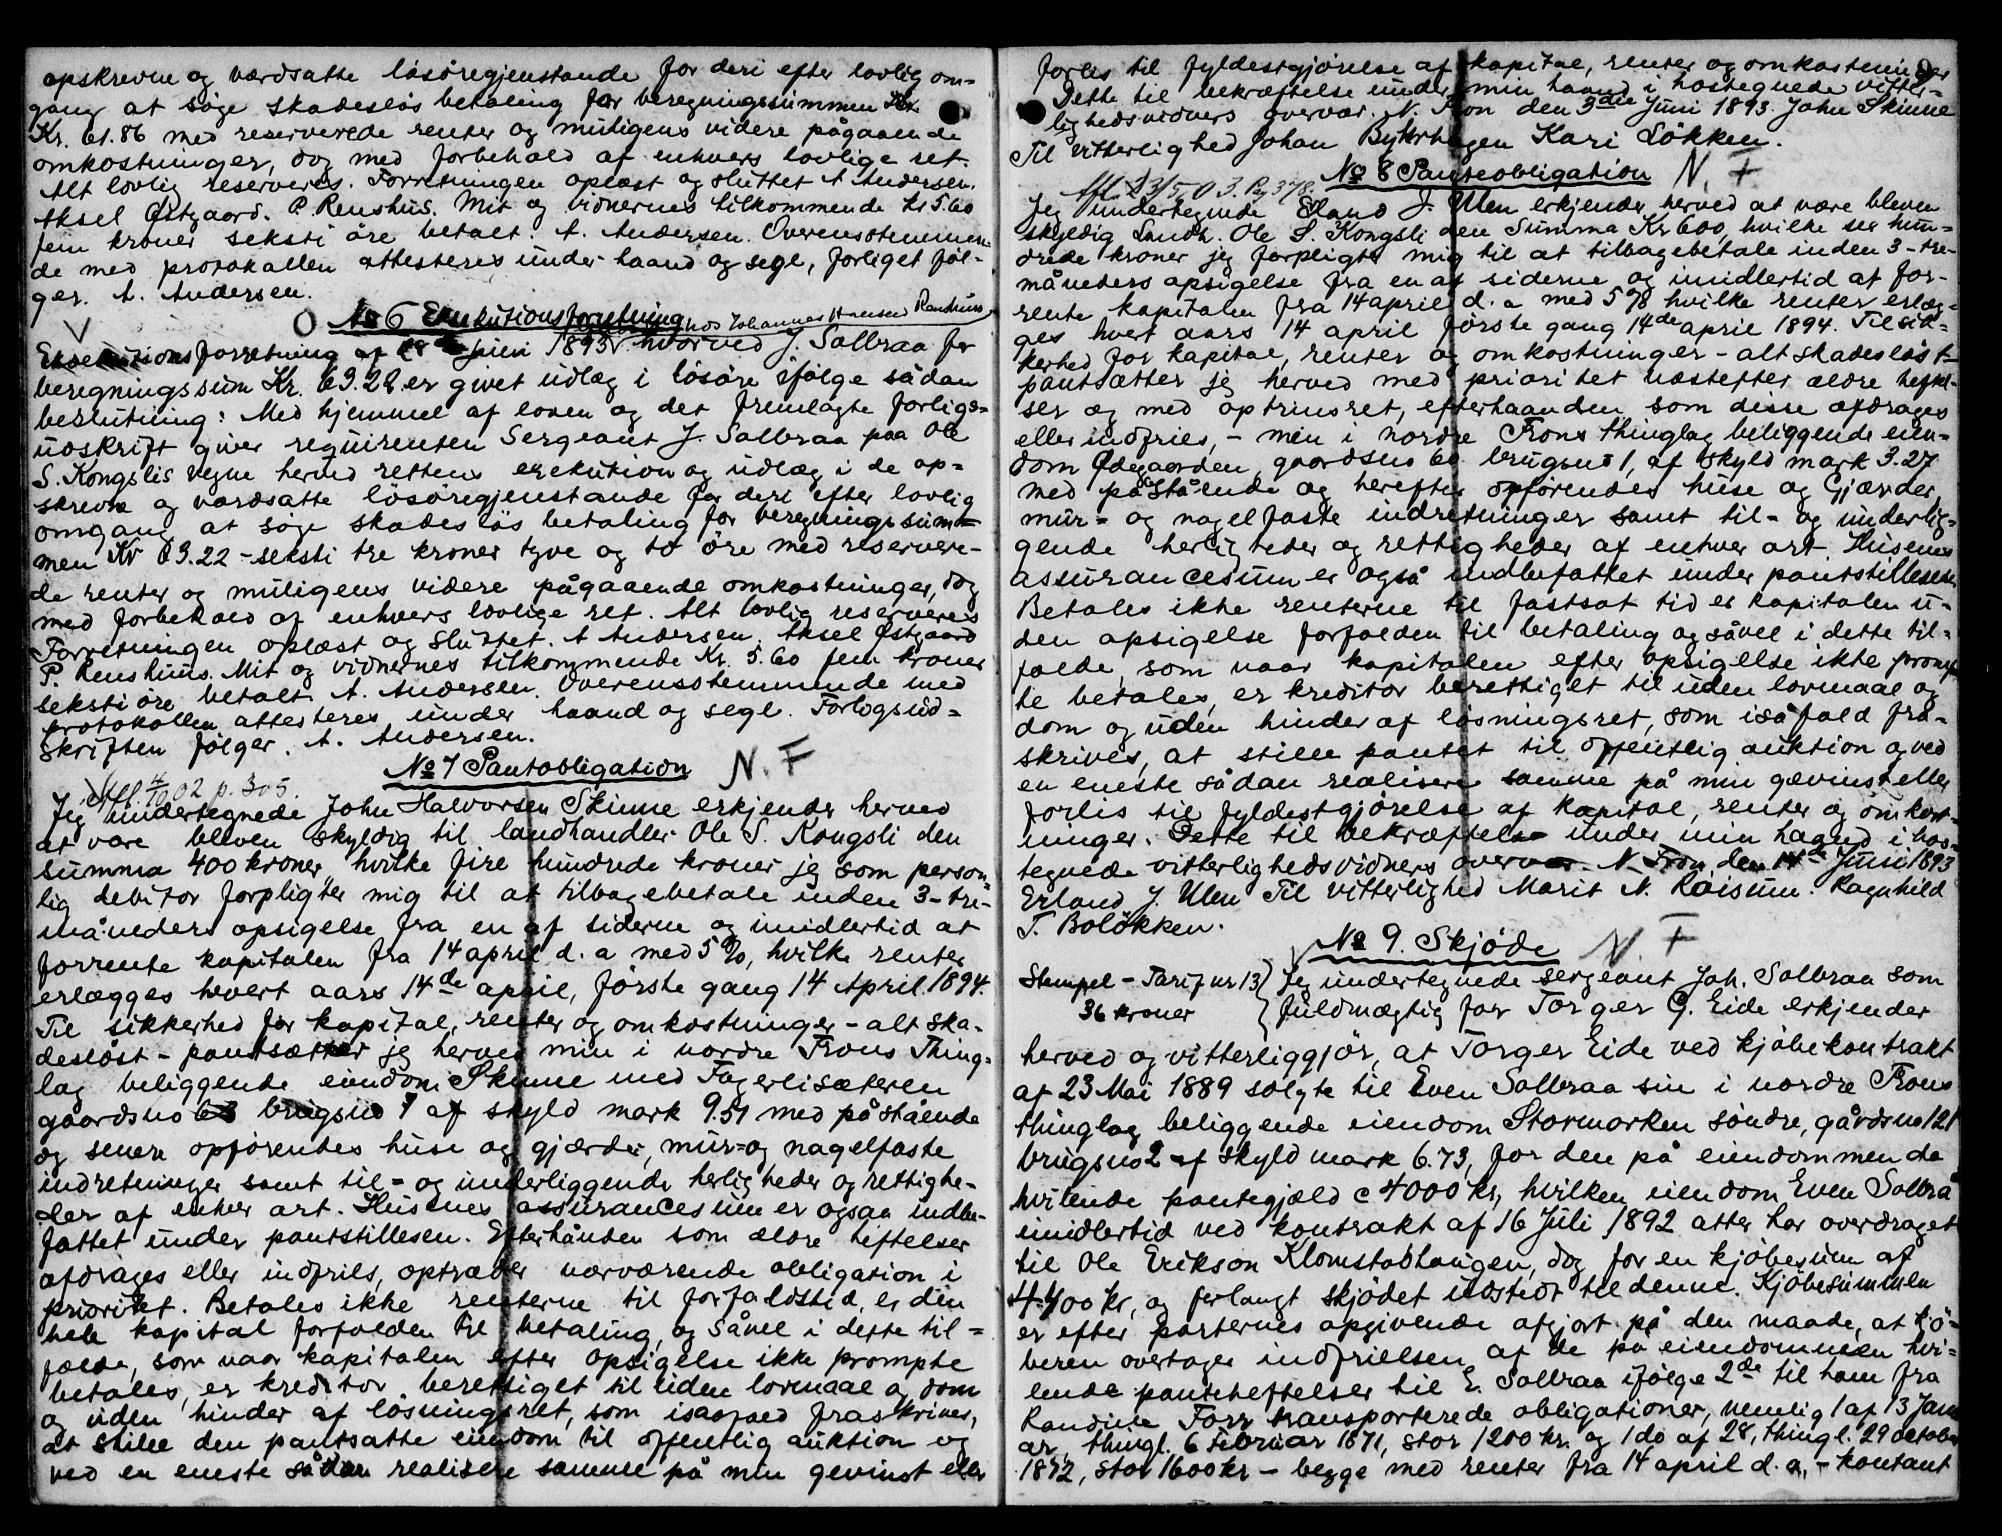 opskrevne og værdsatte løsøregjenstande for deri efter lovlig om-
gang at søge skadesløs betaling for beregningssummen Kr.
Kr. 61.86 med reserverede renter og muligens videre pågaaende
omkostninger, dog med forbehold af enhvers lovlige ret.
Alt lovlig reserveres. Forretningen oplæst og sluttet A Andersen.
Aksel Østgaard. P. Renshus. Mit og vidnernes tilkommende Kr 5.60
fem kroner seksti øre betalt. A. Andersen. Overensstemmen-
de med protokollen attesteres under haand og segl, forliget føl-
ger. A. Andersen.
No 6 Exekutionsforretning
hos Johannes Hansen Renshus
Eksekutionsforretning af Juni 1893 hvorved J. Solbraa for
beregningssum Kr. 63.22 er givet udlæg i løsøre ifølge sådan
beslutning: Med hjemmel af loven og det fremlagte forligs-
udskrift giver requirenten Sergeant J. Solbraa paa Ole
S. Kongslis vegne herved rettens exekution og udlæg i de op-
skrevne og værdsatte løsøregjenstande for deri efter lovlig
omgang at søge skadesløs betaling for beregningssum-
men Kr 63.22 - seksti tre kroner tyve og to øre med reservere-
de renter og muligens videre pågaaende omkostninger, dog
med forbehold af enhvers lovlige ret. Alt lovlig reserveres
Forretningen oplæst og sluttet. A Andersen. Aksel Østgaard
P. Renshus. Mit og vidnernes tilkommende Kr. 5.60 fem kroner
seksti øre betalt A. Andersen. Overensstemmende med
protokollen attesteres under haand og segl. Forligsud-
skriften følger. A. Andersen.
No 7 Pantobligation N. F
Afl 4/10 02 p. 305.
Jeg undertegnede John Halvorsen Skinne erkjender herved
at være bleven skyldig til landhandler Ole S. Kongsli den
summa 400 kroner, hvilke fire hundrede kroner jeg som person-
lig debitor forpligter mig til at tilbagebetale inden 3 - tre-
måneders opsigelse fra en af siderne og imidlertid at
forrente kapitalen fra 14 april d. a med 5 %, hvilke renter
erlægges hvert aars 14de april, første gang 14 April 1894.
Til sikkerhed for kapital, renter og omkostninger - alt ska-
desløst - pantsætter jeg herved min i nordre Frons Thing-
lag beliggende eiendom Skinne med Fagerlisæteren
gaardsno 63 brugsno 1 af skyld mark 9.51 med påstående
og senere opførendes huse og gjærder, mur- og nagelfaste
indretninger samt til- og underliggende herligheder og rettighe-
der af enhver art. Husenes assurancesum er ogsaa indbe-
fattet under pantstillesen. Efterhånden som ældre heftelser
afdrages eller indfries, optræder nærværende obligation i
prioritet. Betales ikke renterne til forfaldstid, er den
hele kapital forfalden til betaling, og såvel i dette til-
fælde, som naar kapitalen efter opsigelse ikke prompte
betales, er kreditor berettiget til uden lovmaal og dom
og uden hinder af løsningsret, som isaafald fraskrives,
at stille den pantsatte eiendom til offentlig auktion og
ved en eneste sådan realisere samme på min gevinst eller
forlis til fyldestgjørelse af kapital, renter og omkostninger
Dette til bekræftelse under min haand i hostegnede vitter-
lighedsvidners overvær. N. Fron den 3die Juni 1893 John Skinne
Til vitterlighed Johan Bykrhagen Kari Løkken.
No 8 Panteobligation N. F
Afl. 23/5 03. Pag 378.
Jeg undertegnede Eland J. Ulen erkjender herved at være bleven
skyldig Landh. Ole S. Kongsli den Summa Kr 600, hvilke sex hun-
drede kroner jeg forpligter mig til at tilbagebetale inden 3 - tre-
måneders opsigelse fra en af siderne og imidlertid at for-
rente kapitalen fra 14 april d. a med 5 % hvilke renter erlæg-
ges hvert aars 14 april første gang 14de april 1894. Til sik-
kerhed for kapital, renter og omkostninger - alt skadesløst -
pantsætter jeg herved med prioritet næstefter ældre heftel-
ser og med optrinsret, efterhaanden som disse afdrages
eller indfries, - min i nordre Frons thinglag beliggende eien-
dom Ødegaarden, gaardsno 60 brugsno 1, af skyld mark 3.27
med påstående og herefter opførendes huse og Gjærder,
mur- og nagelfaste indretninger samt til- og underlig-
gende herligheder og rettigheder af enhver art. Husenes
assurancesum er også indbefattet under pantstillesen.
Betales ikke renterne til fastsat tid er kapitalen u-
den opsigelse forfalden til betaling og såvel i dette til-
fælde, som naar kapitalen efter opsigelse ikke promp-
te betales, er kreditor berettiget til uden lovmaal og
dom og uden hinder af løsningsret, som isåfald fra-
skrives, at stille pantet til offentlig auktion og ved
en eneste sådan realisere samme på min gevinst eller
forlis til fyldestgjørelse af kapital, renter og omkost-
ninger. Dette til bekræftelse under min haand i hos-
tegnede vitterlighedsvidners overvær N. Fron, den 14de Juni 1893
Erland J. Ulen Til vitterlighed Marit N. Roisum. Ragnhild
T. Boløkken.
No 9. Skjøde N. F
Stempel - Tarif nr 13
36 kroner
Jeg undertegnede sergeant Joh. Solbraa som
fuldmægtig for Torger G. Eide erkjender
herved og vitterliggjør, at Torger Eide ved kjøbekontrakt
af 23 Mai 1889 solgte til Even Solbraa sin i nordre Frons
thinglag beliggende eiendom Stormorken søndre, gårdsno 121
brugsno 2 af skyld mark 6.73, for den på eiendommen da
hvilende pantegjæld c 4000 kr, hvilken eiendom Even Solbrå
imidlertid ved kontrakt af 16 Juli 1892 atter har overdraget
til Ole Erikson Klomstadhaugen, dog for en kjøbesum af
4400 kr, og forlangt skjødet udstedt til denne. Kjøbesummen
er efter parternes opgivende afgjort på den maade, at kjø-
beren overtager indfrielsen af de på eiendommen hvi-
lende pantheftelser til E. Solbraa ifølge 2de til ham fra
Randine Forr transporterede obligationer, nemlig 1 af 13 Janu
ar, thingl. 6 Februar 1871, stor 1200 kr. og 1 do af 28, thingl. 29 october
1872, stor 1600 kr - begge med renter fra 14 april d. a, - kontant